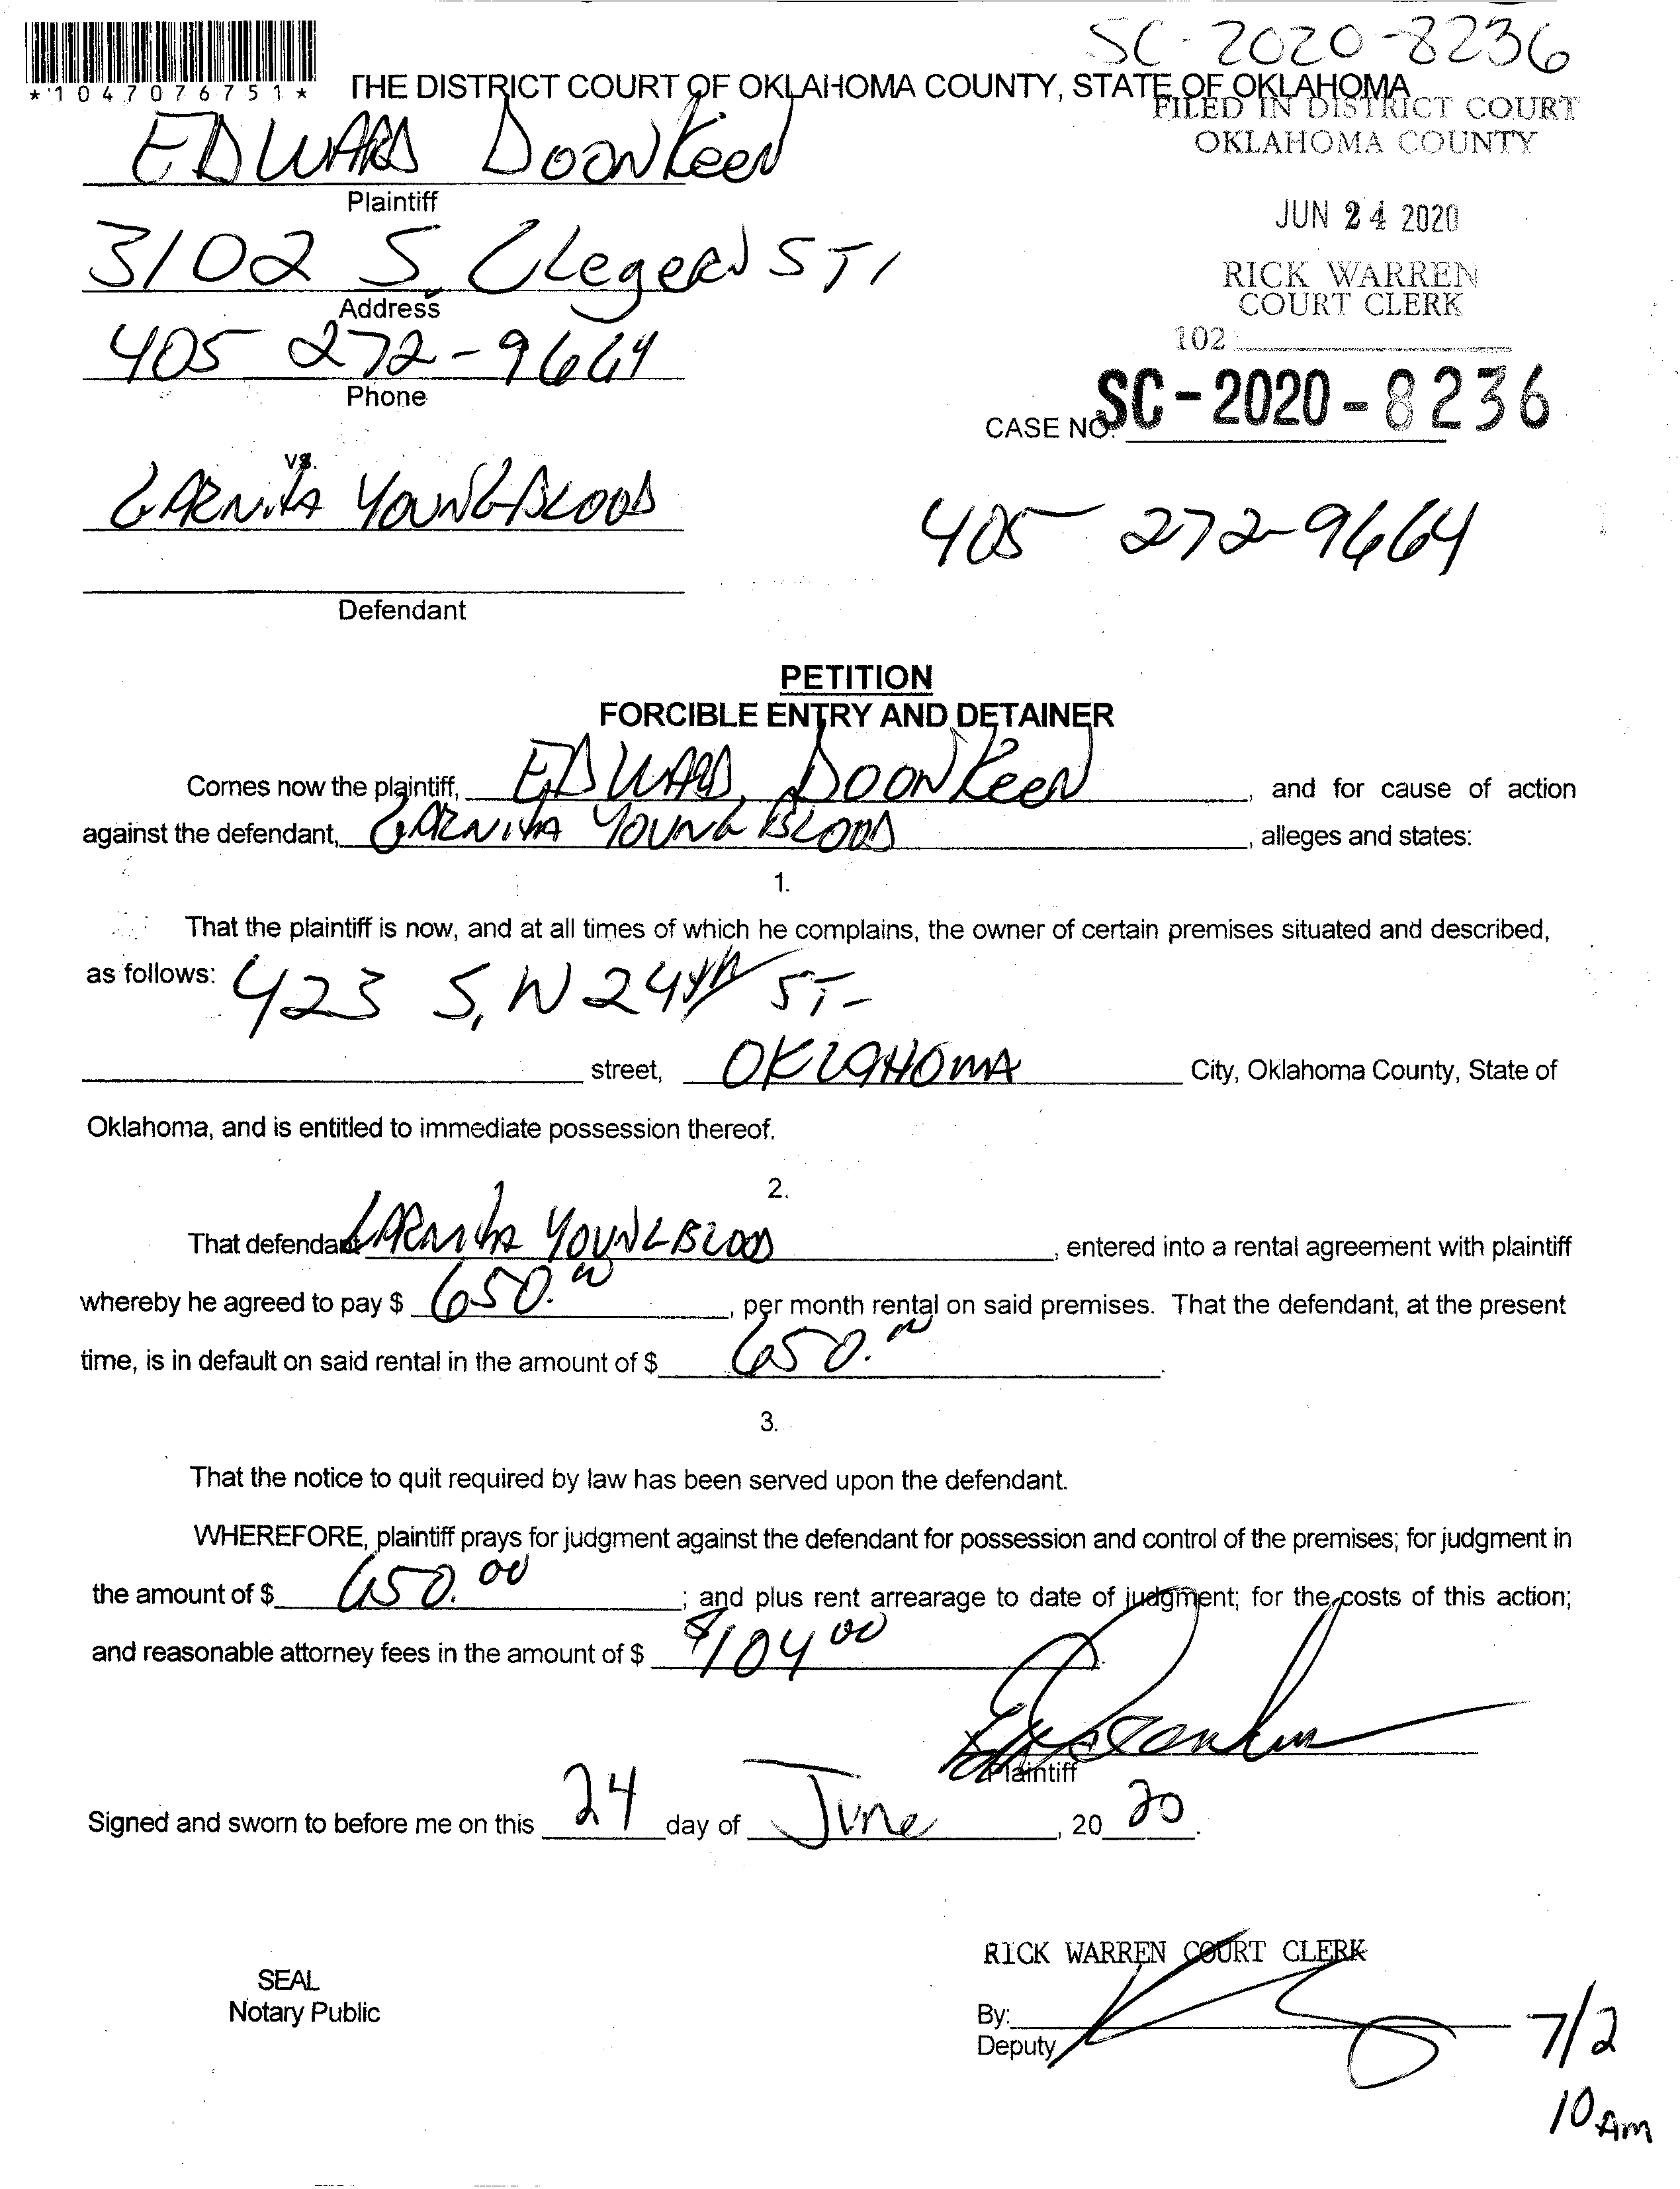 SC-2020-8236
*1047076751*
THE DISTRICT COURT OF OKLAHOMA COUNTY, STATE OF OKLAHOMA
FILED IN DISTRICT COURT
OKLAHOMA COUNTY
EDWARD DOONKEEN
Plaintiff
JUN 24 2020
3102 S CLegeRN ST,
Address
RICK WARREN
COURT CLERK
405 272-9664
Phone
102
CASE NO. SC-2020-8236
vs.
GARNITA YOUNGBLOOD
405 272-9664
Defendant
PETITION
FORCIBLE ENTRY AND DETAINER
Comes now the plaintiff, EDWARD DOONKEEN, and for cause of action
against the defendant, GARNITA YOUNGBLOOD, alleges and states:
1.
That the plaintiff is now, and at all times of which he complains, the owner of certain premises situated and described,
as follows: 423 S,W 24th ST-
street, OKLAHOMA City, Oklahoma County, State of
Oklahoma, and is entitled to immediate possession thereof.
2.
That defendant GARNITA YOUNGBLOOD, entered into a rental agreement with plaintiff
whereby he agreed to pay $ 650.00, per month rental on said premises. That the defendant, at the present
time, is in default on said rental in the amount of $ 650.00.
3.
That the notice to quit required by law has been served upon the defendant.
WHEREFORE, plaintiff prays for judgment against the defendant for possession and control of the premises; for judgment in
the amount of $ 650.00; and plus rent arrearage to date of judgment; for the costs of this action;
and reasonable attorney fees in the amount of $ $104 00.
Plaintiff
Signed and sworn to before me on this 24 day of June, 20 20.
RICK WARREN COURT CLERK
SEAL
Notary Public
By:
Deputy
7/2
10 Am